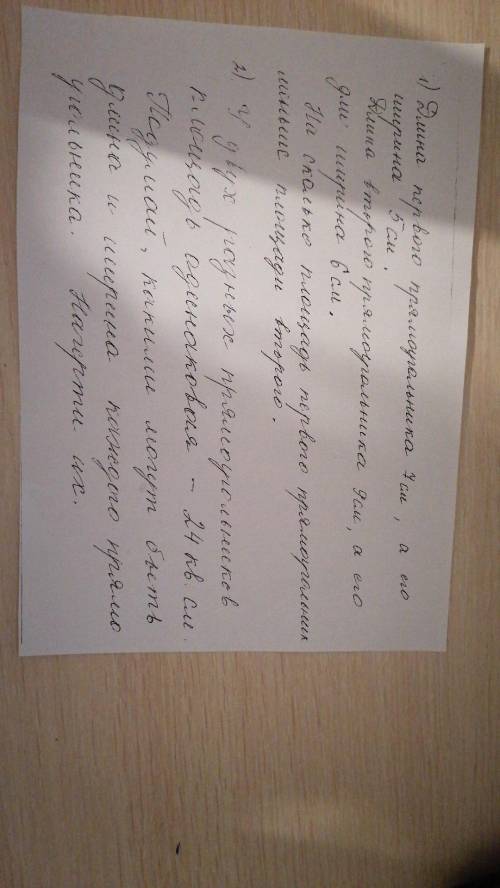 1) Длина первого прямоугольника 7см, а его
ширина 5см.
Длина второго прямоугольника 9см, а его
ширина 6см.
На сколько площадь первого прямоугольник
меньше площади второго.
2) У двух разных прямоугольников
площадь одинаковая – 24 кв. см.
Подумай, какими могут быть
длина и ширина каждого прямо
угольника. Начерти их.